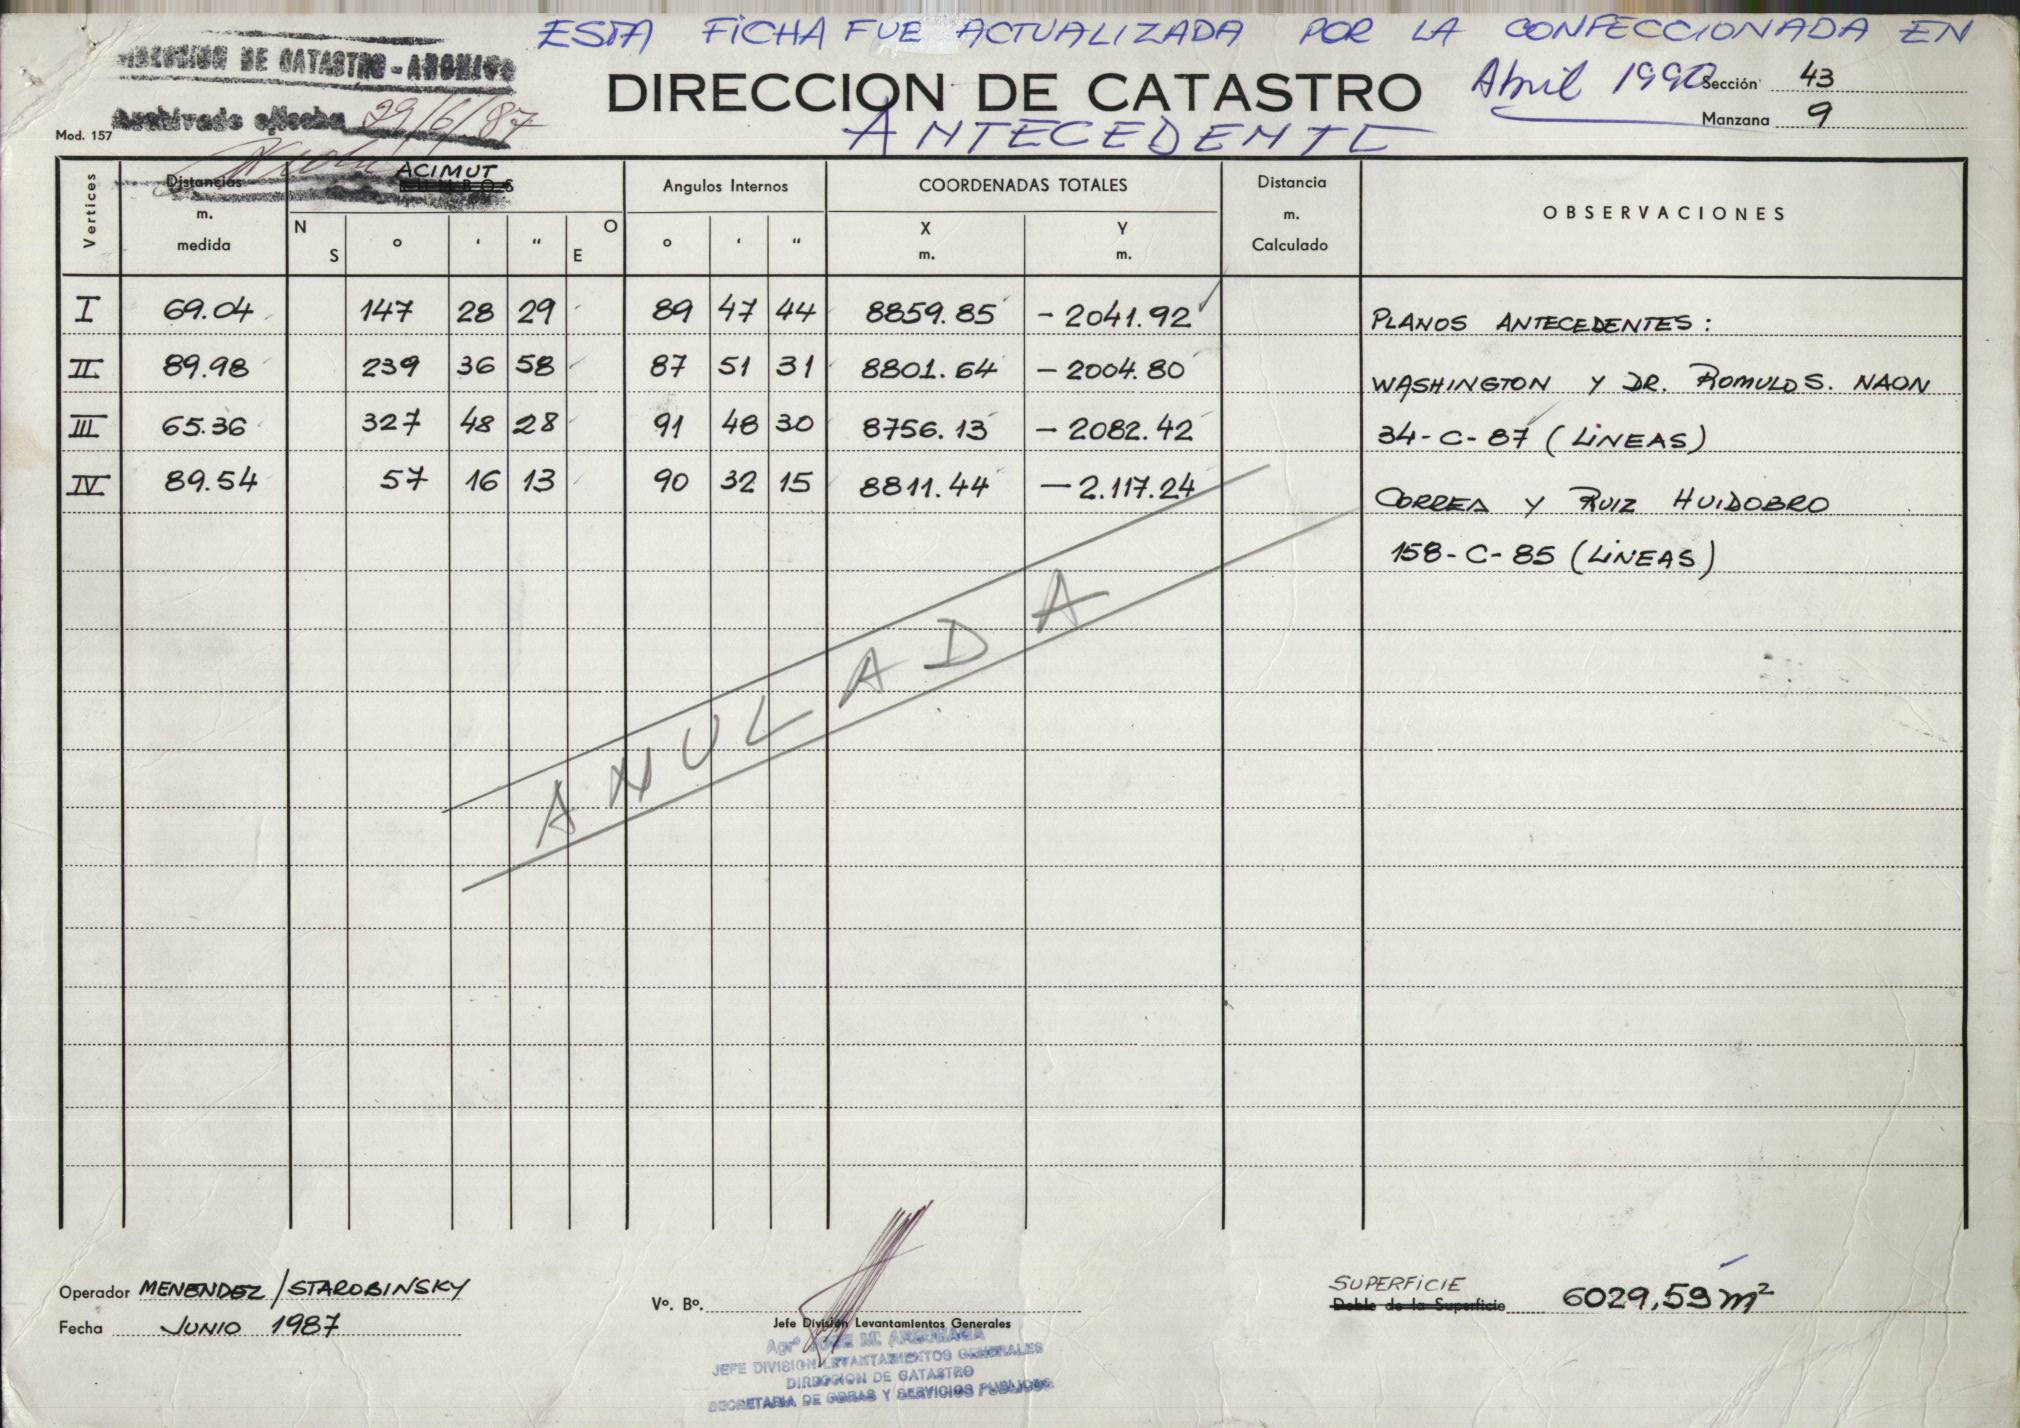 ESTA FICHA FUE ACTUALIZADA POR LA CONFECCIONADA EN
Abril 1990
DIRECCION DE CATASTRO - ARCHIVO
Archivado c/fecha 29/6/87
DIRECCION DE CATASTRO
ANTECEDENTE
Sección 43
Manzana 9
Mod. 157
Vertices
Distancias
m.
medida
ACIMUT
RUMBOS
N S ° ' " O E
Angulos Internos
° ' "
COORDENADAS TOTALES
X m.
Y m.
Distancia
m.
Calculado
OBSERVACIONES
I 69.04 147 28 29 89 47 44 8859.85 -2041.92
II 89.98 239 36 58 87 51 31 8801.64 -2004.80
III 65.36 327 48 28 91 48 30 8756.13 -2082.42
IV 89.54 57 16 13 90 32 15 8811.44 -2.117.24
PLANOS ANTECEDENTES:
WASHINGTON Y DR. ROMULO S. NAON
34-C-87 (LINEAS)
CORREA Y RUIZ HUIDOBRO
158-C-85 (LINEAS)
ANULADA
Operador MENENDEZ/STAROBINSKY
Fecha JUNIO 1987
Vº. Bº.
Jefe División Levantamientos Generales
Agrº JOSE M.
JEFE DIVISION LEVANTAMIENTOS GENERALES
DIRECCION DE CATASTRO
SECRETARIA DE OBRAS Y SERVICIOS PUBLICOS
SUPERFICIE
Doble de la Superficie 6029,59 m²